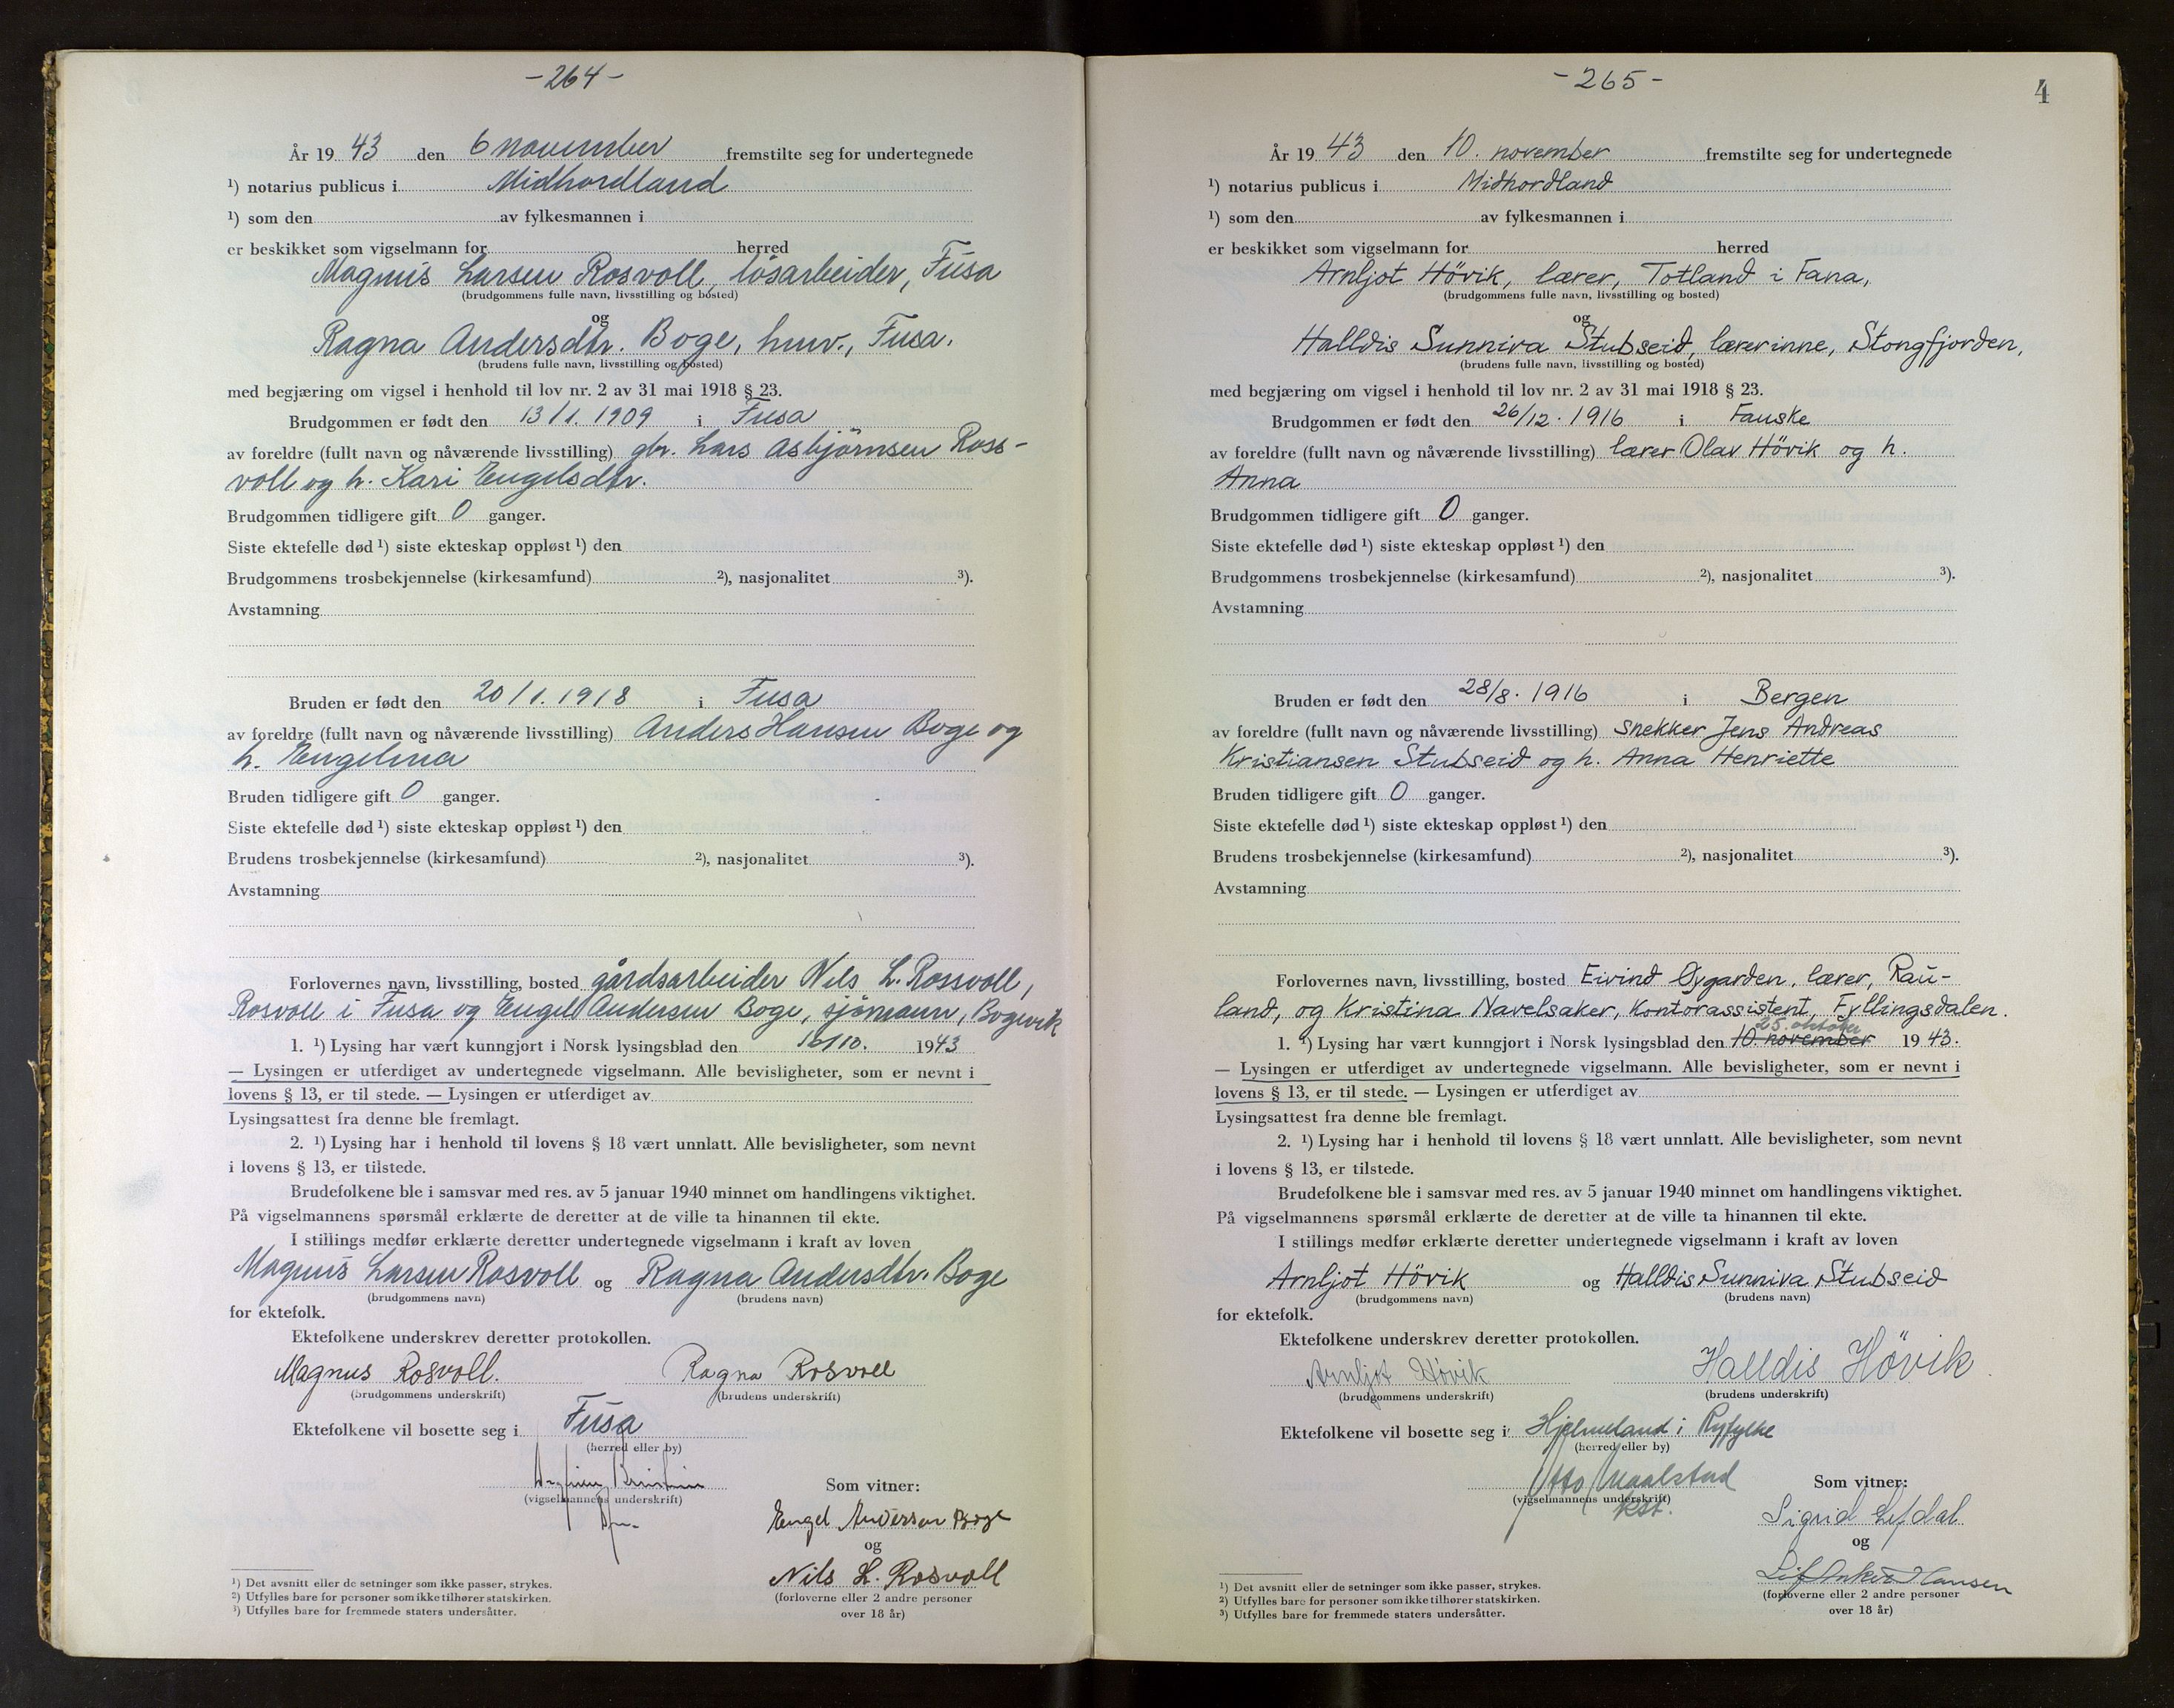 -264-
År 19 43 den 6 november fremstilte seg for undertegnede
¹) notarius publicus i Midhordland
¹) som den av fylkesmannen i
er beskikket som vigselmann for herred
Magnus Larsen Rosvoll, lösarbeider, Fusa
(brudgommens fulle navn, livsstilling og bosted)
og
Ragna Andersdtr. Boge, husv., Fusa.
(brudens fulle navn, livsstilling og bosted)
med begjæring om vigsel i henhold til lov nr. 2 av 31 mai 1918 § 23.
Brudgommen er født den 13/1. 1909 i Fusa
av foreldre (fullt navn og nåværende livsstilling) gbr. Lars Asbjörnsen Ross-
voll og h. Kari Engelsdtr.
Brudgommen tidligere gift 0 ganger.
Siste ektefelle død ¹) siste ekteskap oppløst ¹) den
Brudgommens trosbekjennelse (kirkesamfund) ²), nasjonalitet ³).
Avstamning
Bruden er født den 20/1. 1918 i Fusa
av foreldre (fullt navn og nåværende livsstilling) Anders Hansen Boge og
h. Engelina
Bruden tidligere gift 0 ganger.
Siste ektefelle død ¹) siste ekteskap oppløst ¹) den
Brudens trosbekjennelse (kirkesamfund) ²), nasjonalitet ³).
Avstamning
Forlovernes navn, livsstilling, bosted gårdsarbeider Nils L. Rossvoll,
Rosvoll i Fusa og Engel Andersen Boge, sjömann, Bogevik
1. ¹) Lysing har vært kunngjort i Norsk lysingsblad den 16/10. 1943
— Lysingen er utferdiget av undertegnede vigselmann. Alle bevisligheter, som er nevnt i
lovens § 13, er til stede. — Lysingen er utferdiget av
Lysingsattest fra denne ble fremlagt.
2. ¹) Lysing har i henhold til lovens § 18 vært unnlatt. Alle bevisligheter, som nevnt
i lovens § 13, er tilstede.
Brudefolkene ble i samsvar med res. av 5 januar 1940 minnet om handlingens viktighet.
På vigselmannens spørsmål erklærte de deretter at de ville ta hinannen til ekte.
I stillings medfør erklærte deretter undertegnede vigselmann i kraft av loven
Magnus Larsen Rosvoll og Ragna Andersdtr. Boge
(brudgommens navn) (brudens navn)
for ektefolk.
Ektefolkene underskrev deretter protokollen.
Magnus Rosvoll. Ragna Rosvoll
(brudgommens underskrift) (brudens underskrift)
Ektefolkene vil bosette seg i Fusa
(herred eller by)
Som vitner:
(vigselmannens underskrift)
Engel Anderson Boge
og
Nils L. Rosvoll
(forloverne eller 2 andre personer
over 18 år)
¹) Det avsnitt eller de setninger som ikke passer, strykes.
²) Utfylles bare for personer som ikke tilhører statskirken.
³) Utfylles bare for fremmede staters undersåtter.
-265-
4
År 19 43 den 10. november fremstilte seg for undertegnede
¹) notarius publicus i Midhordland
¹) som den av fylkesmannen i
er beskikket som vigselmann for herred
Arnljot Hövik, lærer, Totland i Fana,
(brudgommens fulle navn, livsstilling og bosted)
og
Halldis Sunniva Stubseid, lærerinne, Stongfjorden,
(brudens fulle navn, livsstilling og bosted)
med begjæring om vigsel i henhold til lov nr. 2 av 31 mai 1918 § 23.
Brudgommen er født den 26/12. 1916 i Fauske
av foreldre (fullt navn og nåværende livsstilling) lærer Olav Hövik og h.
Anna
Brudgommen tidligere gift 0 ganger.
Siste ektefelle død ¹) siste ekteskap oppløst ¹) den
Brudgommens trosbekjennelse (kirkesamfund) ²), nasjonalitet ³).
Avstamning
Bruden er født den 28/8. 1916 i Bergen
av foreldre (fullt navn og nåværende livsstilling) snekker Jens Andreas
Kristiansen Stubseid og h. Anna Henriette
Bruden tidligere gift 0 ganger.
Siste ektefelle død ¹) siste ekteskap oppløst ¹) den
Brudens trosbekjennelse (kirkesamfund) ²), nasjonalitet ³).
Avstamning
Forlovernes navn, livsstilling, bosted Eivind Øygarden, lærer, Rau-
land, og Kristina Navelsaker, kontorassistent, Fyllingsdalen.
25. oktober
1. ¹) Lysing har vært kunngjort i Norsk lysingsblad den 10. november 19 43.
— Lysingen er utferdiget av undertegnede vigselmann. Alle bevisligheter, som er nevnt i
lovens § 13, er til stede. — Lysingen er utferdiget av
Lysingsattest fra denne ble fremlagt.
2. ¹) Lysing har i henhold til lovens § 18 vært unnlatt. Alle bevisligheter, som nevnt
i lovens § 13, er tilstede.
Brudefolkene ble i samsvar med res. av 5 januar 1940 minnet om handlingens viktighet.
På vigselmannens spørsmål erklærte de deretter at de ville ta hinannen til ekte.
I stillings medfør erklærte deretter undertegnede vigselmann i kraft av loven
Arnljot Hövik og Halldis Sunniva Stubseid
(brudgommens navn) (brudens navn)
for ektefolk.
Ektefolkene underskrev deretter protokollen.
Arnljot Hövik Halldis Hövik
(brudgommens underskrift) (brudens underskrift)
Ektefolkene vil bosette seg i Hjelmeland i Ryfylke
(herred eller by)
Otto Maalstad Som vitner:
(vigselmannens underskrift)
kst.
Sigrid Lefdal
og
Leif Anker Hansen
(forloverne eller 2 andre personer
over 18 år)
¹) Det avsnitt eller de setninger som ikke passer, strykes.
²) Utfylles bare for personer som ikke tilhører statskirken.
³) Utfylles bare for fremmede staters undersåtter.